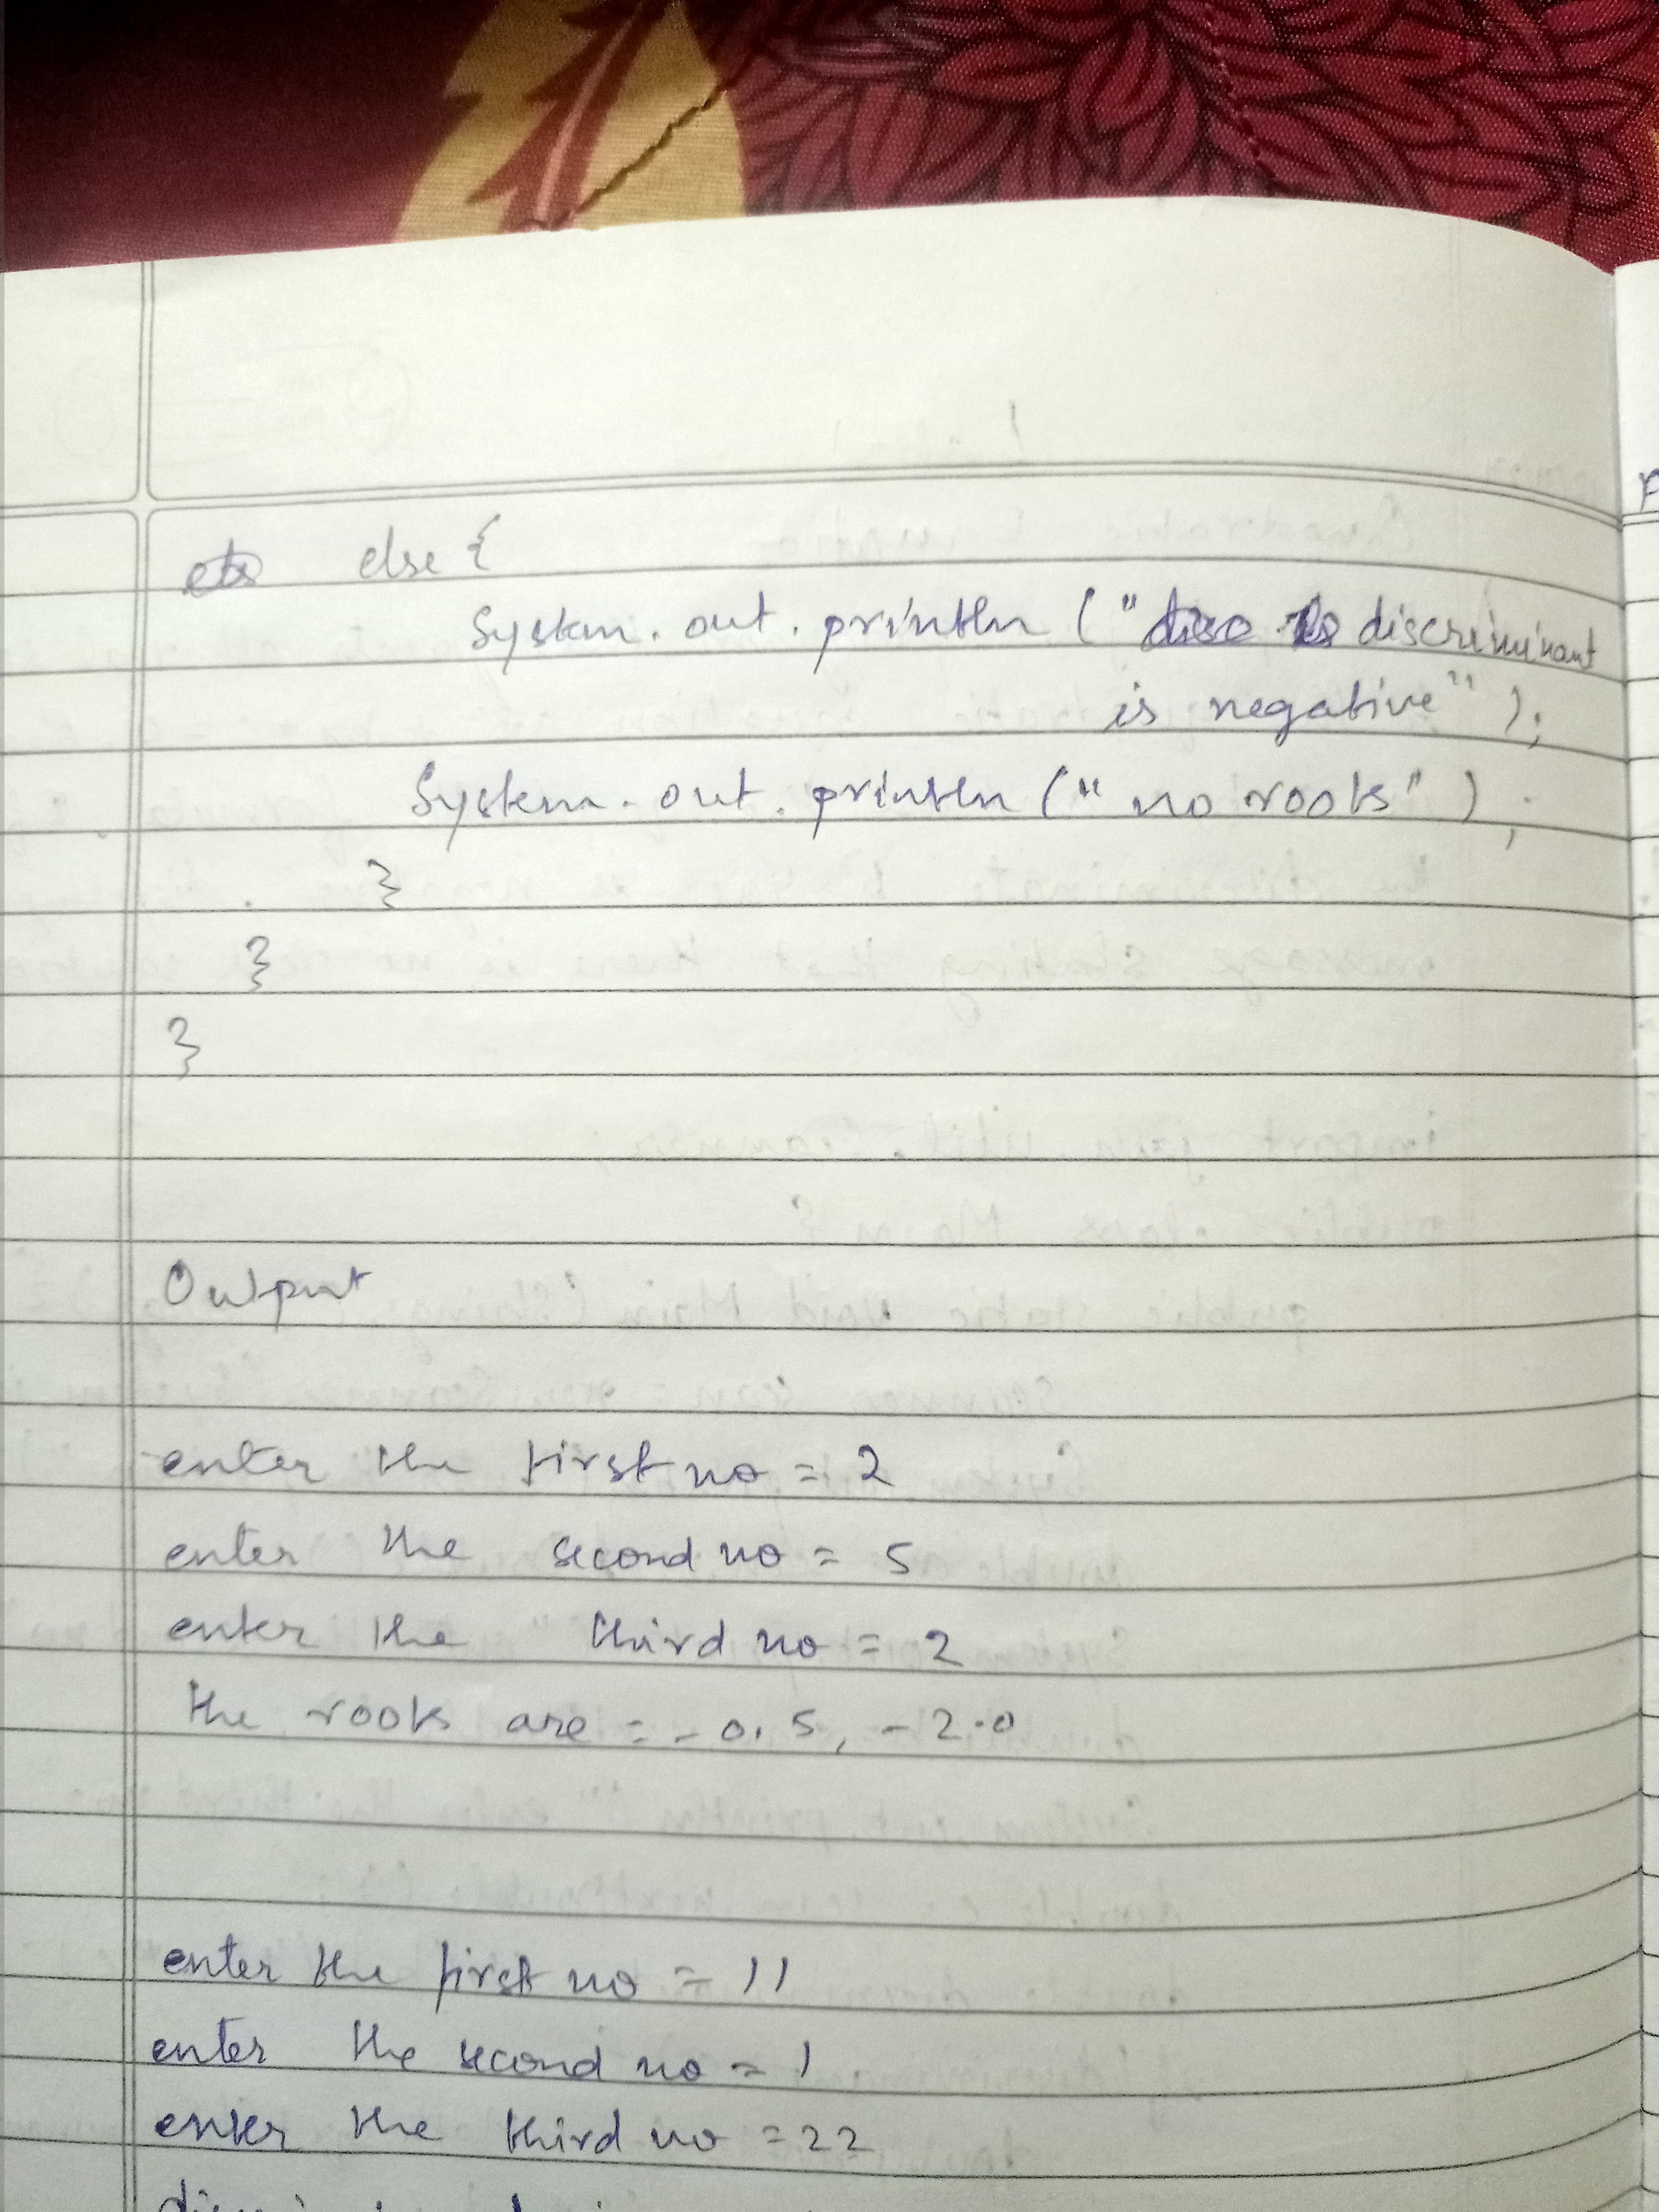 else {
System.out.println ("discriminant
is negative");
System.out.println ("no roots");
}
}
}
Output
enter the first no = 2
enter the second no = 5
enter the third no = 2
the roots are = -0.5, -2.0
enter the first no = 11
enter the second no = 1
enter the third no = 22